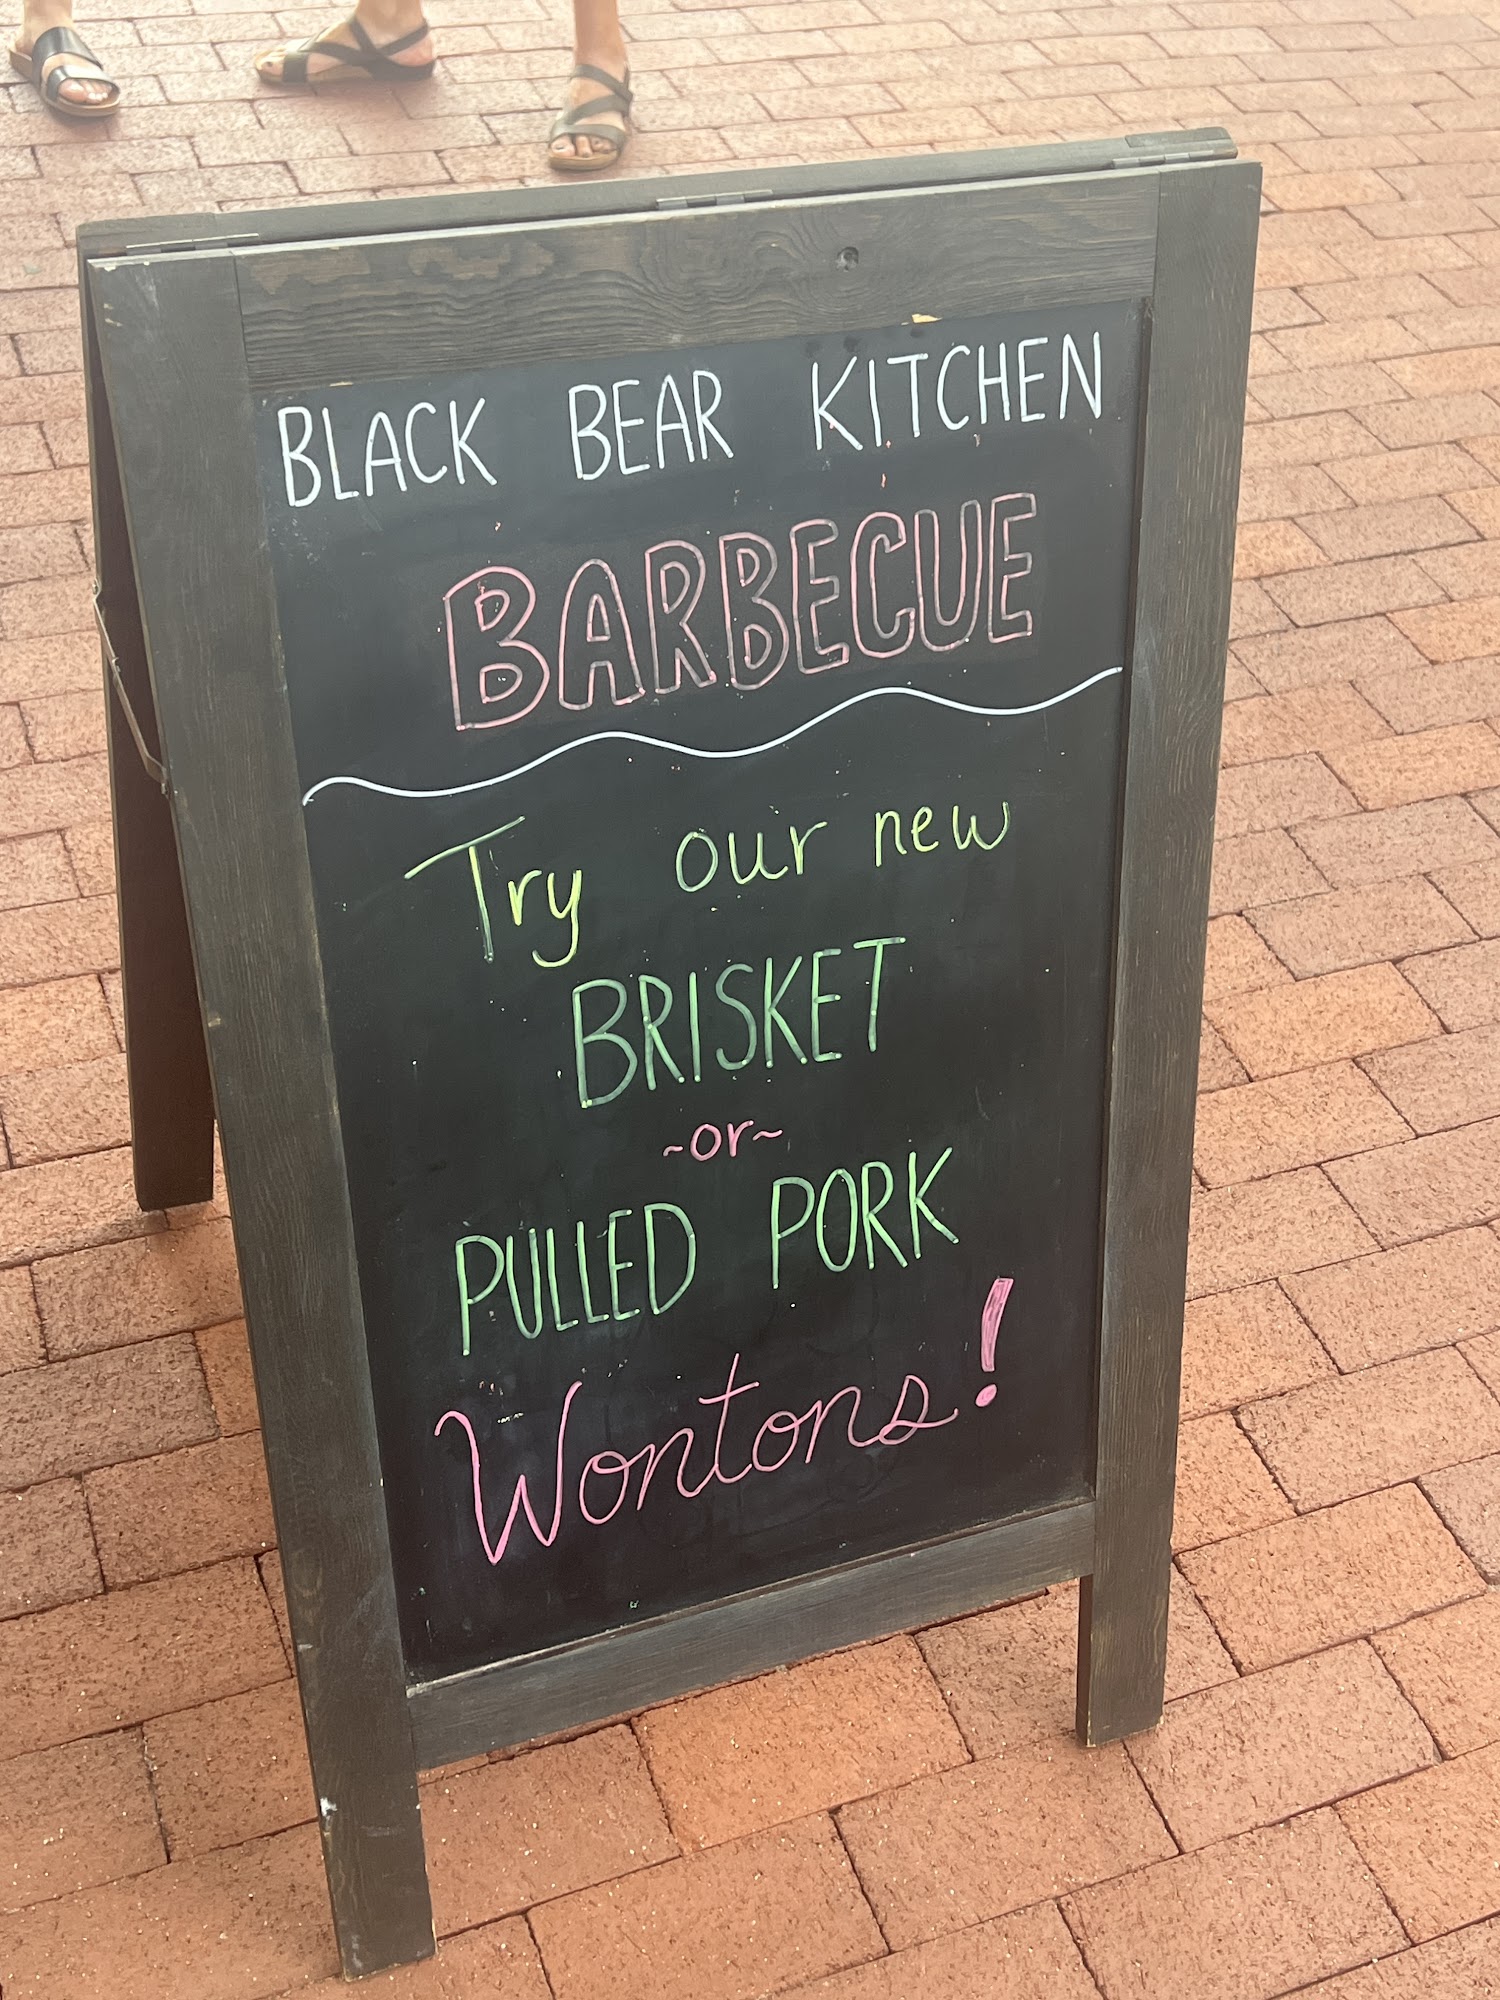 BLACK BEAR KITCHEN
BARBECUE
Try our new
BRISKET
~or~
PULLED PORK
Wontons!